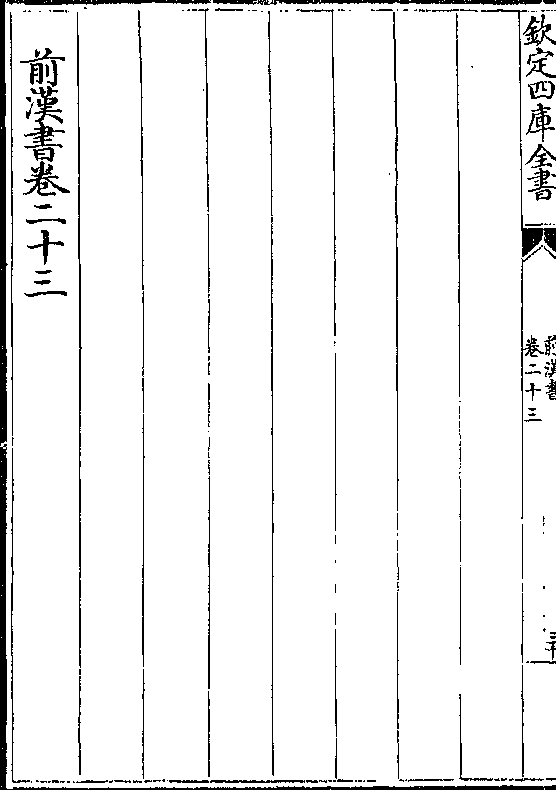 欽定四庫全書
前漢書
卷二十三
前漢書卷二十三